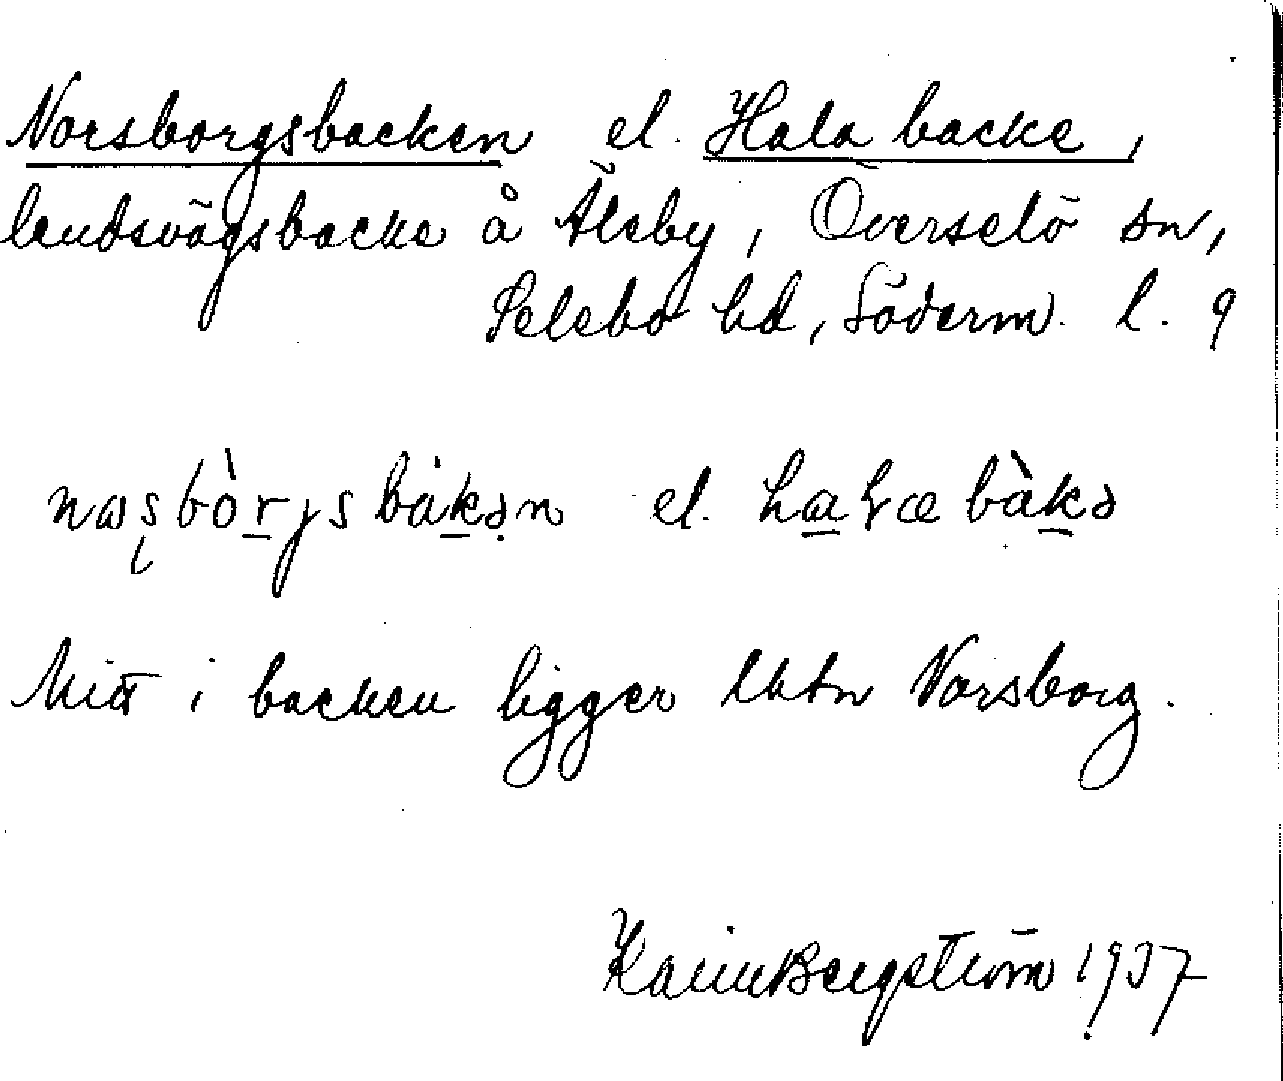 Norsborgsbacken el. Hala backe,
landsvägsbacke å Älsby, Överselö sn,
Selebo hd, Söderm. l. 9
el.
Mitt i backen ligger lhtn Norsborg.
Karin Bergström 1937